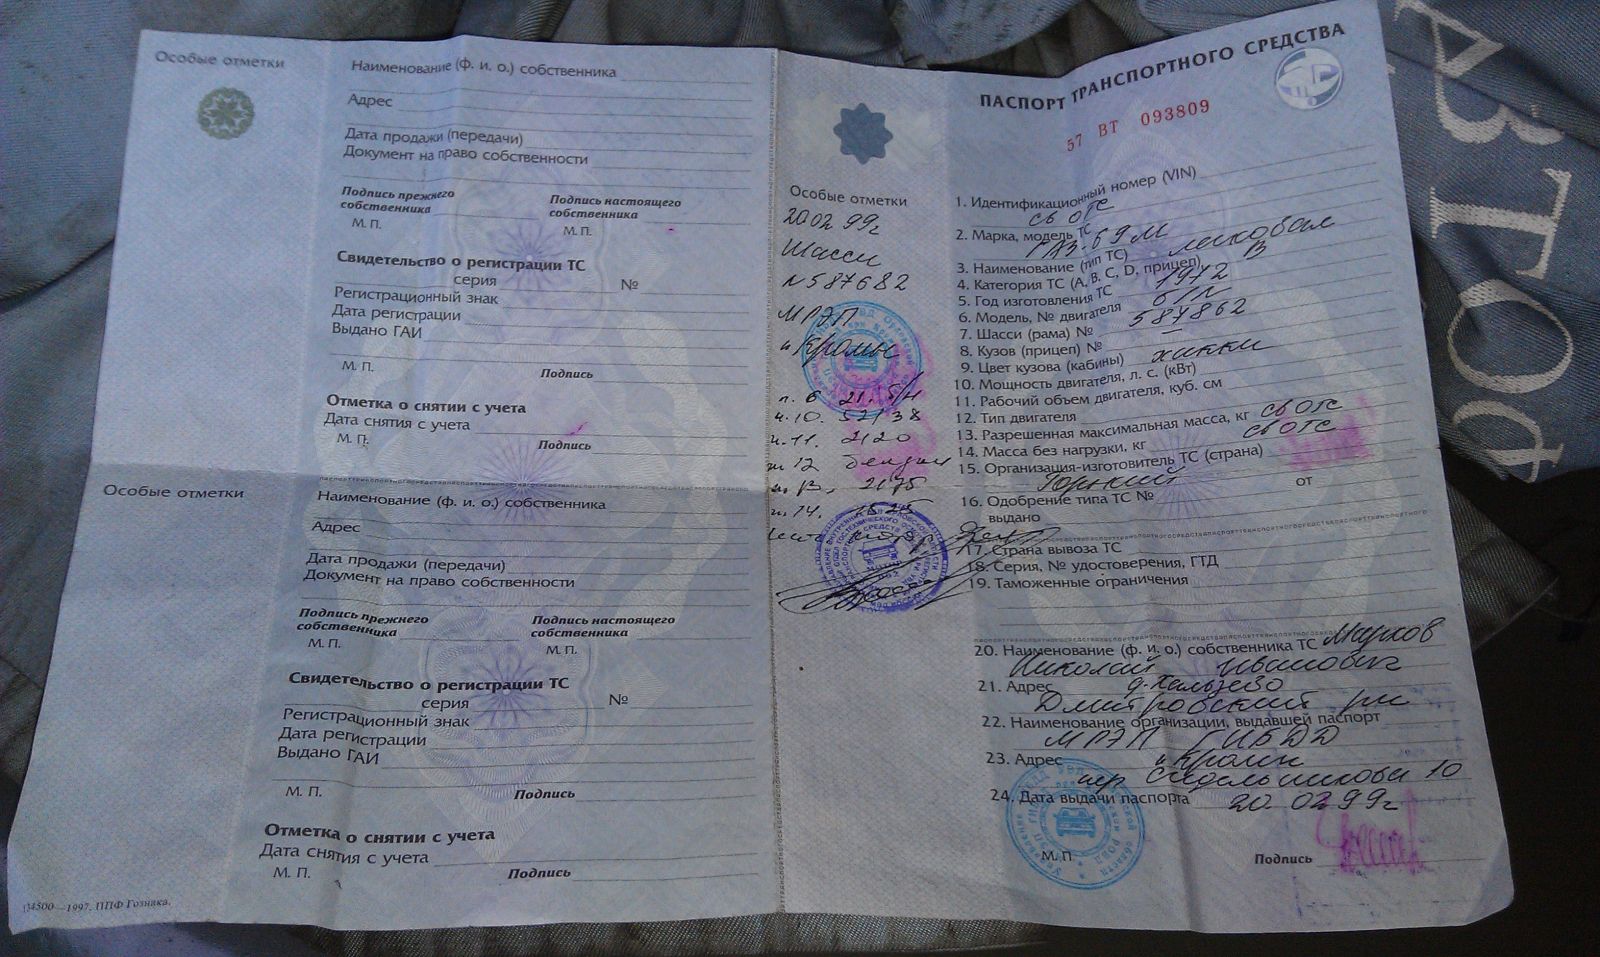 Особые отметки
Наименование (ф. и. о.) собственника
Адрес
Дата продажи (передачи)
Документ на право собственности
Подпись прежнего собственника
Подпись настоящего собственника
М. П.
М. П.
Свидетельство о регистрации ТС
серия №
Регистрационный знак
Дата регистрации
Выдано ГАИ
М. П.
Подпись
Отметка о снятии с учета
Дата снятия с учета
М. П.
Подпись
Особые отметки
Наименование (ф. и. о.) собственника
Адрес
Дата продажи (передачи)
Документ на право собственности
Подпись прежнего собственника
Подпись настоящего собственника
М. П.
М. П.
Свидетельство о регистрации ТС
серия №
Регистрационный знак
Дата регистрации
Выдано ГАИ
М. П.
Подпись
Отметка о снятии с учета
Дата снятия с учета
М. П.
Подпись
1997. ППФ Гознака.
Особые отметки
20.02.99г
Шасси
N587682
МРЭП
п. Кромы
п. 6 21. б/н
п. 10. 52/38
п. 11. 2120
п. 12 бензин
п. 13. 2175
п. 14. 1525
ПАСПОРТ ТРАНСПОРТНОГО СРЕДСТВА
57 ВТ 093809
1. Идентификационный номер (VIN)
св отс
2. Марка, модель ТС ГАЗ-69М
3. Наименование (тип ТС) легковой
4. Категория ТС (A, B, C, D, прицеп) В
5. Год изготовления ТС 1972
6. Модель, № двигателя б/н
7. Шасси (рама) № 587862
8. Кузов (прицеп) № —
9. Цвет кузова (кабины) хакки
10. Мощность двигателя, л. с. (кВт)
11. Рабочий объем двигателя, куб. см
12. Тип двигателя
13. Разрешенная максимальная масса, кг св отс
14. Масса без нагрузки, кг св отс
15. Организация-изготовитель ТС (страна)
Горький
16. Одобрение типа ТС № от
выдано
17. Страна вывоза ТС
18. Серия, № удостоверения, ГТД
19. Таможенные ограничения
20. Наименование (ф. и. о.) собственника ТС Марков
Николай Иванович
21. Адрес
Дмитровский
22. Наименование организации, выдавшей паспорт
МРЭП ГИБДД
23. Адрес п Кромы
пер Сидельникова 10
24. Дата выдачи паспорта 20.02.99г
М. П.
Подпись
АВТОФ